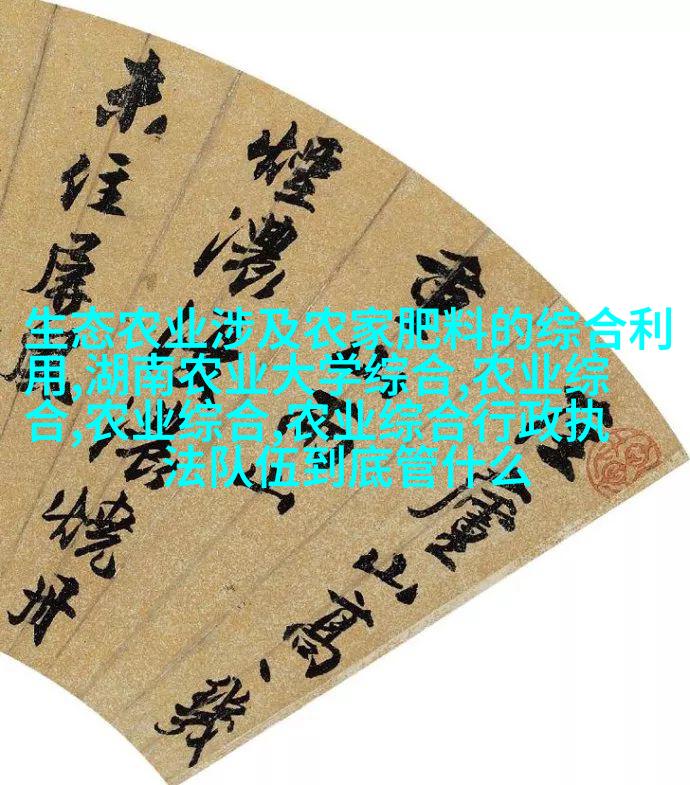 生态农业涉及农家肥料的综合利
用,湖南农业大学综合,农业综
合,农业综合,农业综合行政执
法队伍到底管什么
廬山高
煙濃
燒丹
未住屏